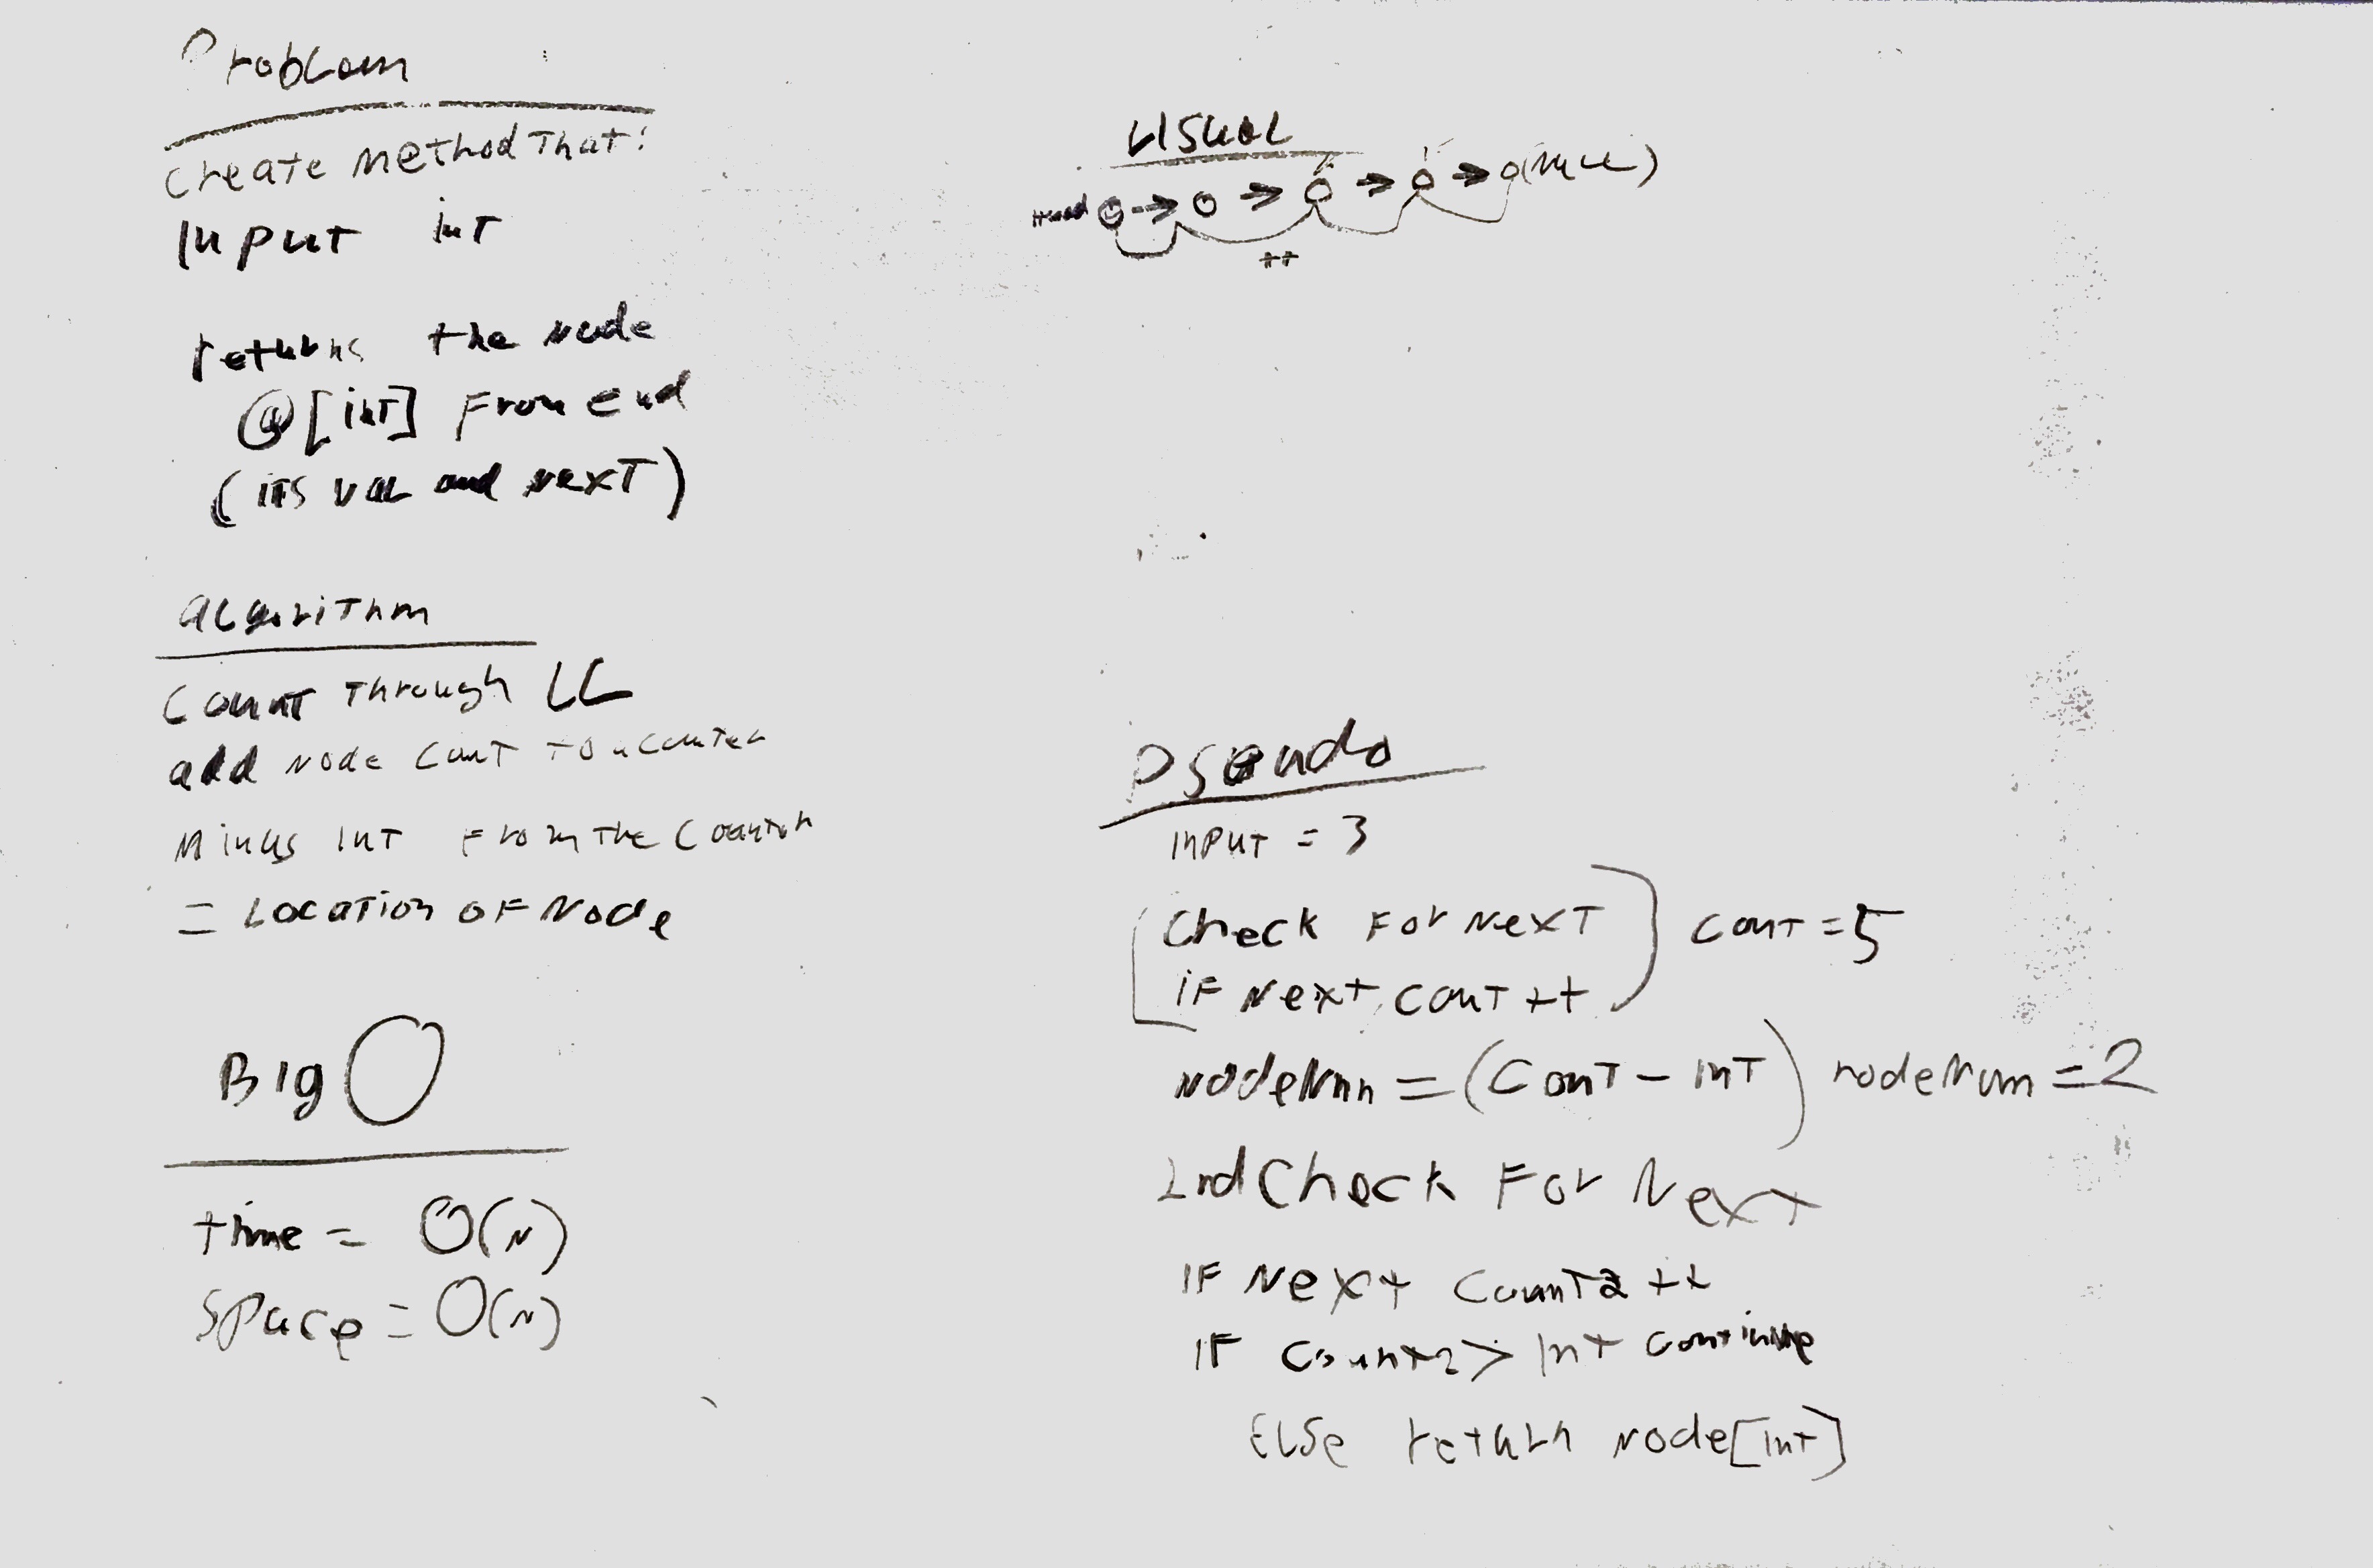 Problem
Create Method That:
Input int
returns the node
@[int] From end
(its val and next)
Algorithm
Count Through LL
add node Cont to a Counter
Minus int From The Counter
= Location of Node
Big O
time = O(N)
Space = O(N)
Visual
Head o → o → o → o → o(Null)
++
Pseudo
input = 3
Check For Next
if Next, Cont ++
Cont = 5
nodeNum = (Cont - int) nodeNum = 2
2nd Check For Next
if Next Count2 ++
if Count2 > int continue
Else return node[int]